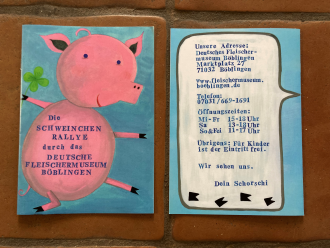 Die
SCHWEINCHEN
RALLYE
durch das
DEUTSCHE
FLEISCHERMUSEUM
BÖBLINGEN
Unsere Adresse:
Deutsches Fleischer-
museum Böblingen
Marktplatz 27
71032 Böblingen
www.fleischermuseum.
boeblingen.de
Telefon:
07031/669-1691
Öffnungszeiten:
Mi-Fr 15-18 Uhr
Sa 13-18 Uhr
So&Fei 11-17 Uhr
Übrigens: Für Kinder
ist der Eintritt frei.
Wir sehen uns.
Dein Schorschi